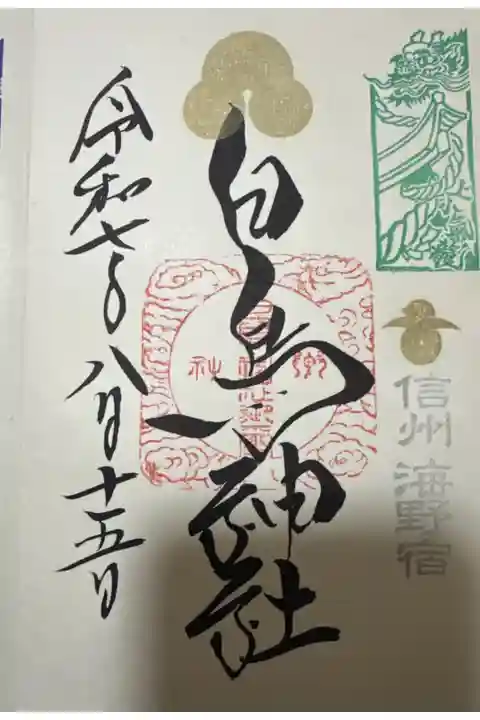 信州 海野宿
白鳥神社
令和七年八月十五日